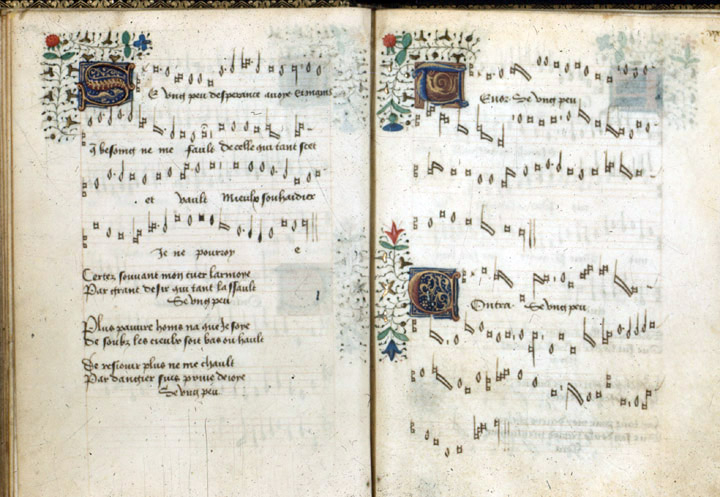 Se ung peu desperance avoye et mains
q besoing ne me faule de celle qui tant scet
et vault Mieulx souhaidier
Je ne pourroy e
Certez souvant mon cuer larmoye
Par grant desir qui tant lassault
Se ung peu
Plus pauvre homs na que je soye
De soubz les cieulx soit bas ou hault
De resioir plus ne me chault
Par dangier suis prive de joye
Se ung peu
Tenor Se ung peu
Contra Se ung peu